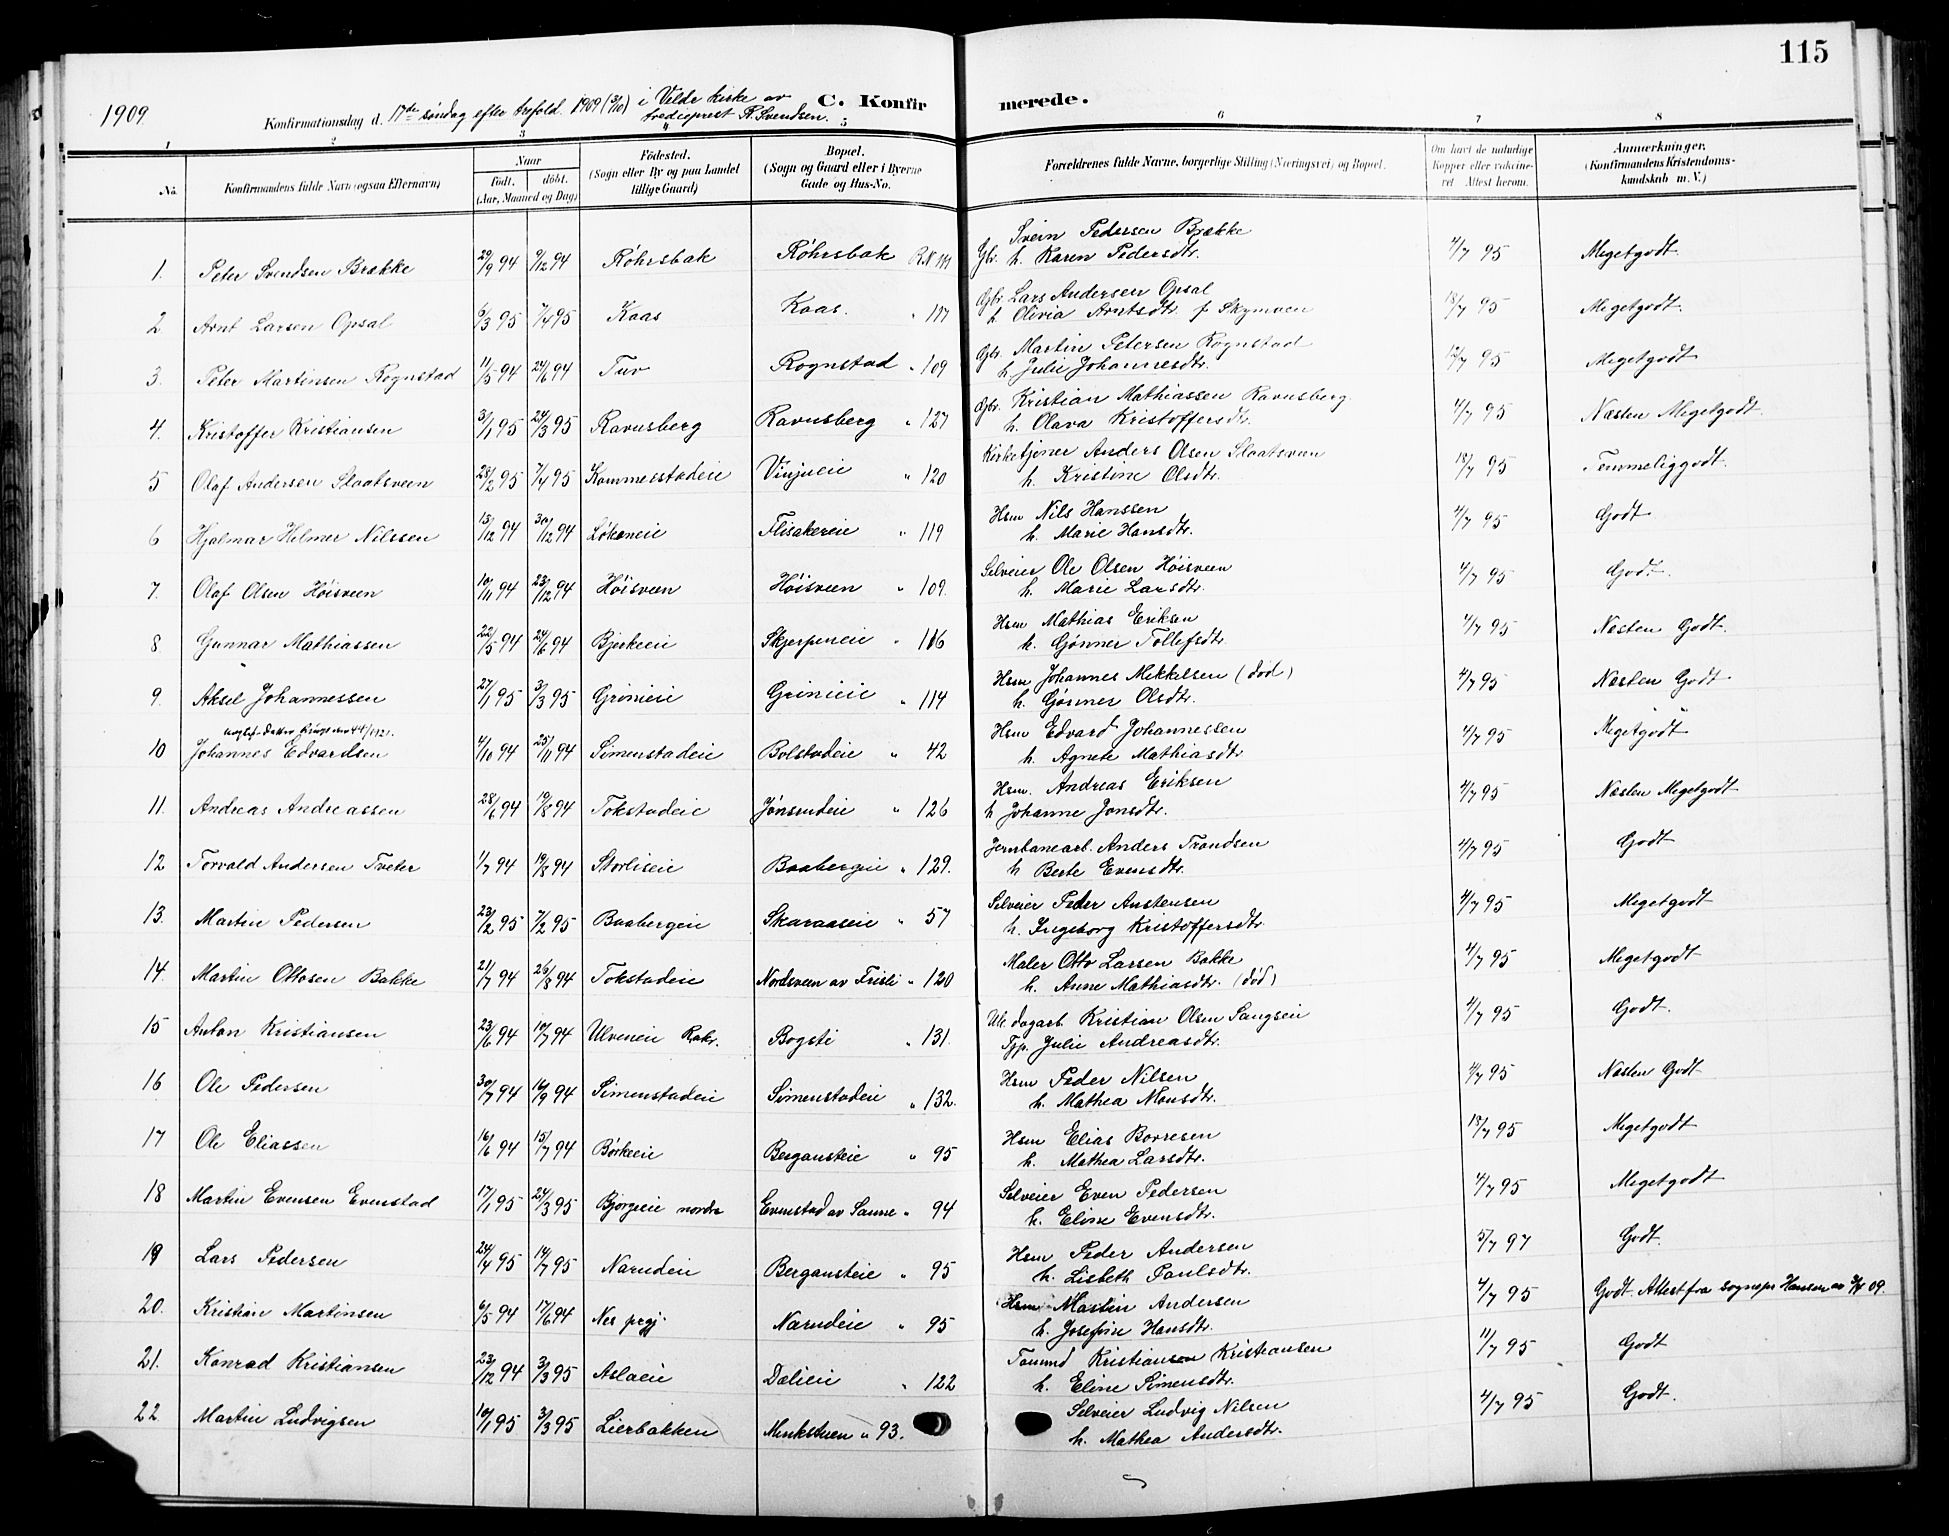 115
1909
Konfirmationsdag d. 17de søndag efter trefold. 1909 (3/10) i Veldre kirke av
tredieprest R. Svendsen.
C. Konfirmerede.
1 2 3 4 5 6 7 8
No.
Konfirmandens fulde Navn (ogsaa Efternavn)
Naar
Født. døbt.
(Aar, Maaned og Dag)
Fødested.
(Sogn eller By og paa Landet
tillige Gaard)
Bopæl.
(Sogn og Gaard eller i Byerne
Gade og Hus-No.
Forældrenes fulde Navne, borgerlige Stilling (Næringsvei) og Bopæl.
Om havt de naturlige
Kopper eller vaccine-
ret Attest herom.
Anmerkninger.
(Konfirmandens Kristendoms-
kundskab m. V.)
Svein Pedersen Brække
1. Peter Svendsen Brække 29/9 94 9/12 94 Røhrsbak Røhrsbak R.N 111 Gbr. h. Karen Pedersdtr. 4/7 95 Megetgodt.
Gbr. Lars Andersen Opsal
2 Arnt Larsen Opsal 6/3 95 7/4 95 Kaas Kaas. " 117 h Olivia Arntsdtr. f Skymoen 18/7 95 Megetgodt.
Gbr. Martin Petersen Rognstad
3. Peter Martinsen Rognstad 11/5 94 24/6 94 Tuv Rognstad " 109 h Julie Johannesdtr. 12/7 95 Megetgodt
Gbr. Kristian Mathiassen Ravnsberg
4. Kristoffer Kristiansen 31/1 95 24/3 95 Ravnsberg Ravnsberg " 127 h. Olava Kristoffersdtr. 4/7 95 Næsten Megetgodt.
Kirketjener Anders Olsen Slaatsveen
5 Olaf Andersen Slaatsveen 28/2 95 7/4 95 Kommerstadeie Vinjueie " 120 h. Kristine Olsdtr. 18/7 95 Temmeliggodt.
Hsm Nils Hanssen
6 Hjalmar Helmer Nilssen 13/12 94 30/12 94 Løkeneie Flisakereie " 119 h. Marie Hansdtr. 4/7 95 Godt
Selveier Ole Olsen Høisveen
7. Olaf Olsen Høisveen 10/11 94 23/12 94 Høisveen Høisveen " 109. h. Marie Larsdtr. 4/7 95 Godt.
Hsm Mathias Eriksen
8 Gunnar Mathiassen 22/5 94 24/6 94 Bjerkeeie Skjerpeneie " 116 h. Gønner Tollefsdtr. 4/7 95 Næsten Godt.
Hsm Johannes Mikkelsen (død)
9. Aksel Johannessen 27/1 95 3/3 95 Grinieie Grinieie " 114 h. Gønner Olsdtr. 4/7 95 Næsten Godt
Hsm Edvard Johannessen
10 Johannes Edvardsen 4/10 94 25/11 94 Simenstadeie Bolstadeie " 42 h. Agnete Mathiasdtr 4/7 95 Megetgodt
Hsm. Andreas Eriksen
11. Andreas Andreassen 28/6 94 19/8 94 Tokstadeie Jønsrudeie " 126 h Johanne Jonsdtr. 4/7 95 Næsten Megetgodt
Jernbanearb. Anders Trondsen
12 Torvald Andersen Tveter 1/7 94 19/8 94 Storliseie Baabergeie " 129. h Berte Evensdtr. 4/7 95 Godt
Selveier Peder Austensen
13. Martin Pedersen 23/2 95 7/2 95 Baabergeie Skaraaseie " 57 h. Ingeborg Kristoffersdtr 4/7 95 Megetgodt
Maler Otto Larsen Bakke
14. Martin Ottosen Bakke 21/7 94 26/8 94 Tokstadeie Nordsveen av Fristi " 120 h. Anne Mathiasdtr. (død) 4/7 95 Megetgodt
Ug. dagarb. Kristian Olsen Sangsen
15 Anton Kristiansen 23/6 94 10/7 94 Ulveneie Rakr. Bogsti " 131. Tjp. Julie Andreasdtr. 4/7 95 Godt.
Hsm Peder Nilsen
16 Ole Pedersen 30/7 94 16/9 94 Simenstadeie Simenstadeie " 132. h. Mathea Monsdtr. 4/7 95 Næsten Godt
Hsm Elias Borresen
17 Ole Eliassen 16/6 94 15/7 94 Børkeeie Bergansteie " 95 h. Mathea Larsdtr. 18/7 95 Megetgodt
Selveier Even Pedersen
18 Martin Evensen Evenstad 17/1 95 24/3 95 Bjørgeeie nordre Evenstad av Sanne " 94 h. Eline Evensdtr. 4/7 95 Megetgodt
Hsm Peder Andersen
19 Lars Pedersen 24/4 95 14/7 95 Narudeie Bergansteie " 95 h. Lisbeth Paulsdtr. 5/7 97 Godt.
Hsm Martin Andersen
20. Kristian Martinsen 6/5 94 17/6 94 Nes prgj. Narudeie " 95 h. Josefine Hansdtr. 4/7 95 Godt. Attest fra sognepr Hansen 09.
Tømmd Kristiansen Kristiansen
21. Konrad Kristiansen 23/12 94 3/3 95 Aslaeie Dælieie " 122 h. Eline Simensdtr. 11/7 95 Godt
Selveier Ludvig Nilsen
22 Martin Ludvigsen 10/1 95 3/3 95 Lierbakken Munkstuen " 93. h. Mathea Andersdtr. 4/7 95 Godt.